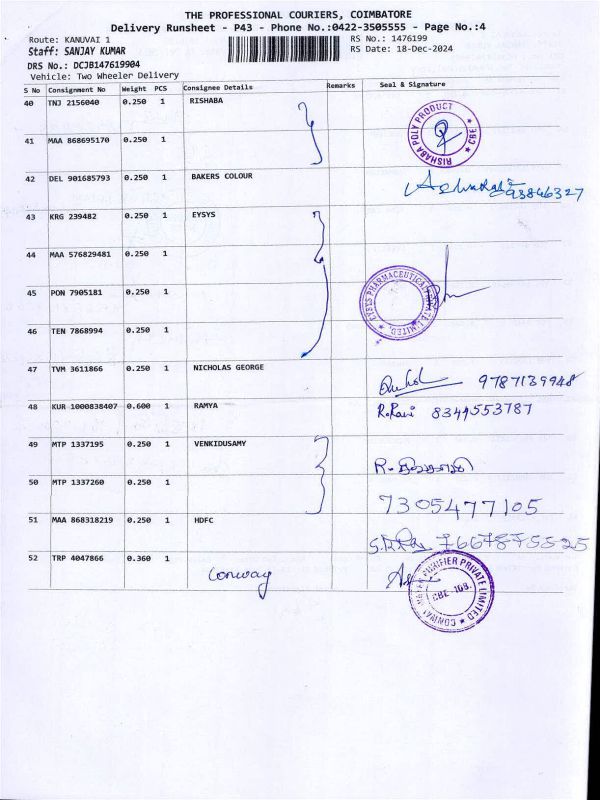 THE PROFESSIONAL COURIERS, COIMBATORE
Delivery Runsheet - P43 - Phone No.:0422-3505555 - Page No.:4
Route: KANUVAI 1
RS No.: 1476199
Staff: SANJAY KUMAR
RS Date: 18-Dec-2024
DRS No.: DCJB147619904
Vehicle: Two Wheeler Delivery
S No Consignment No Weight PCS Consignee Details Remarks Seal & Signature
40 TNJ 2156040 0.250 1 RISHABA
RISHABA POLY PRODUCT ★ CBE ★
41 MAA 868695170 0.250 1
42 DEL 901685793 0.250 1 BAKERS COLOUR
43 KRG 239482 0.250 1 EYSYS
44 MAA 576829481 0.250 1
45 PON 7905181 0.250 1
EYSYS PHARMACEUTICAL PRIVATE LIMITED ★
46 TEN 7868994 0.250 1
47 TVM 3611866 0.250 1 NICHOLAS GEORGE
9787139948
48 KUR 1000838407 0.600 1 RAMYA
R.Ravi 8344553787
49 MTP 1337195 0.250 1 VENKIDUSAMY
50 MTP 1337260 0.250 1
7305477105
51 MAA 868318219 0.250 1 HDFC
52 TRP 4047866 0.360 1
Conway
PURIFIER PRIVATE LIMITED ★
CBE-108.